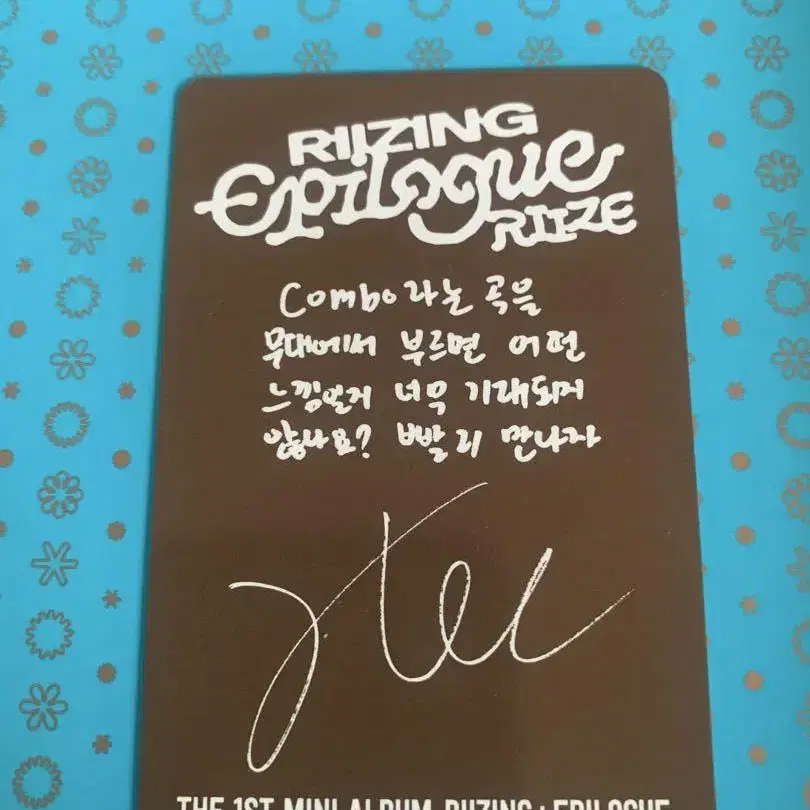 RIIZING
Epilogue
RIIZE
Combo라는 곡을
무대에서 부르면 어떤
느낌일지 너무 기대되지
않나요? 빨리 만나자
THE 1ST MINI ALBUM RIIZING : EPILOGUE